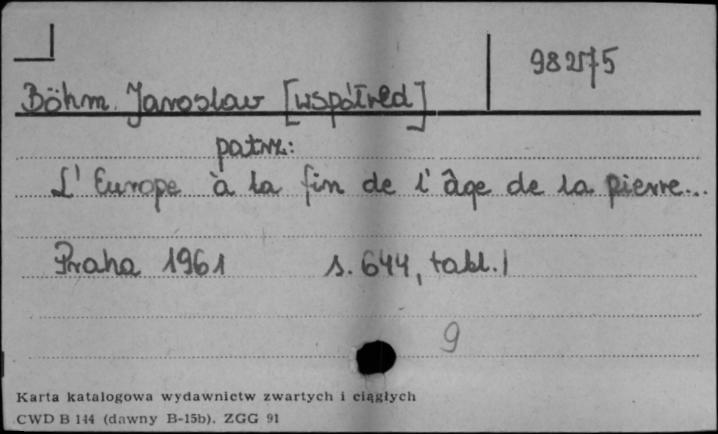 98275
Böhm Jarosław [współred]
patrz:
L'Europe à la fin de l'âge de la pierre...
Praha 1961 s. 644, tabl. 1
9
Karta katalogowa wydawnictw zwartych i ciągłych
CWD B 144 (dawny B-15b). ZGG 91